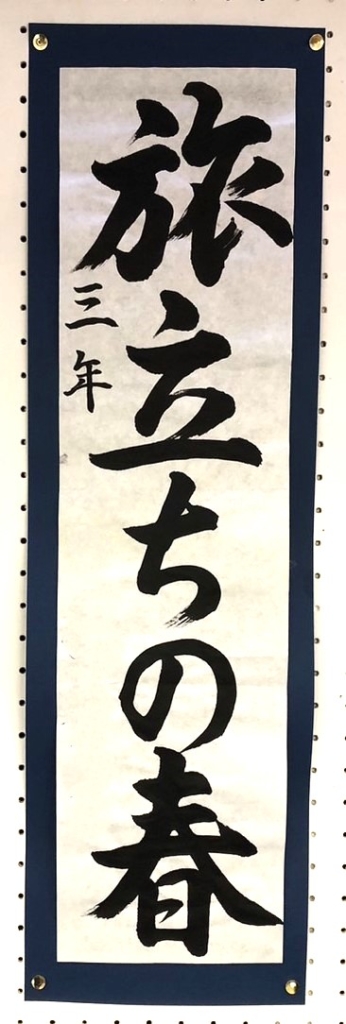 旅立ちの春
三年